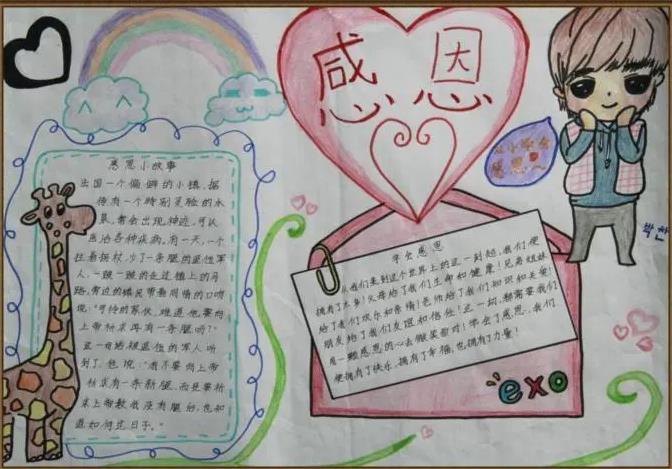 感恩
感恩小故事
法国一个偏僻的小镇,据
传有一个特别灵验的水
泉,常会出现神迹,可以
医治各种疾病。有一天,一个
拄着拐杖,少了一条腿的退伍军
人,一跛一跛的走过镇上的马
路,旁边的镇民带着同情的口吻
说:“可怜的家伙,难道他要向
上帝祈求再有一条腿吗?”
这一句话被退伍的军人听
到了,他说:“我不要向上帝
祈求有一条新腿,而是要祈
求上帝教我没有腿后,也知
道如何过日子。”
学会感恩
从我们来到这个世界上的这一刻起,我们便
拥有了太多!父母给了我们生命和健康!兄弟姐妹
给了我们欢乐和亲情!老师给了我们知识和关爱!
朋友给了我们友谊和信任!这一切,都需要我们
用一颗感恩的心去微笑面对!学会了感恩,我们
便拥有了快乐,拥有了幸福,也拥有了力量!
exo
从小学会
感恩